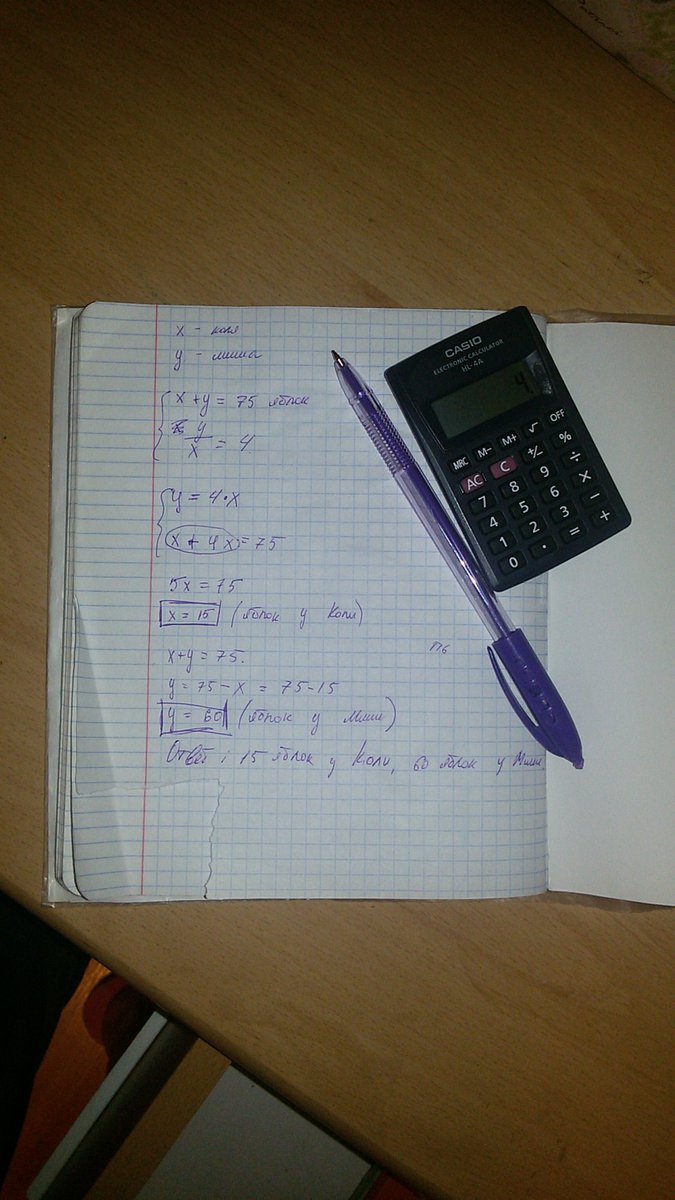 x - коля
y - миша
x + y = 75 яблок
y
x = 4
y = 4·x
x + 4x = 75
5x = 75
x = 15 (яблок у Коли)
x+y = 75.
y = 75 - x = 75 - 15
y = 60 (яблок у Миши)
Ответ: 15 яблок у Коли, 60 яблок у Миши
CASIO
ELECTRONIC CALCULATOR
HL-4A
4
MRC M- M+ √ OFF
AC C +/- % 
7 8 9 ÷
4 5 6 X
1 2 3 −
0 · = +